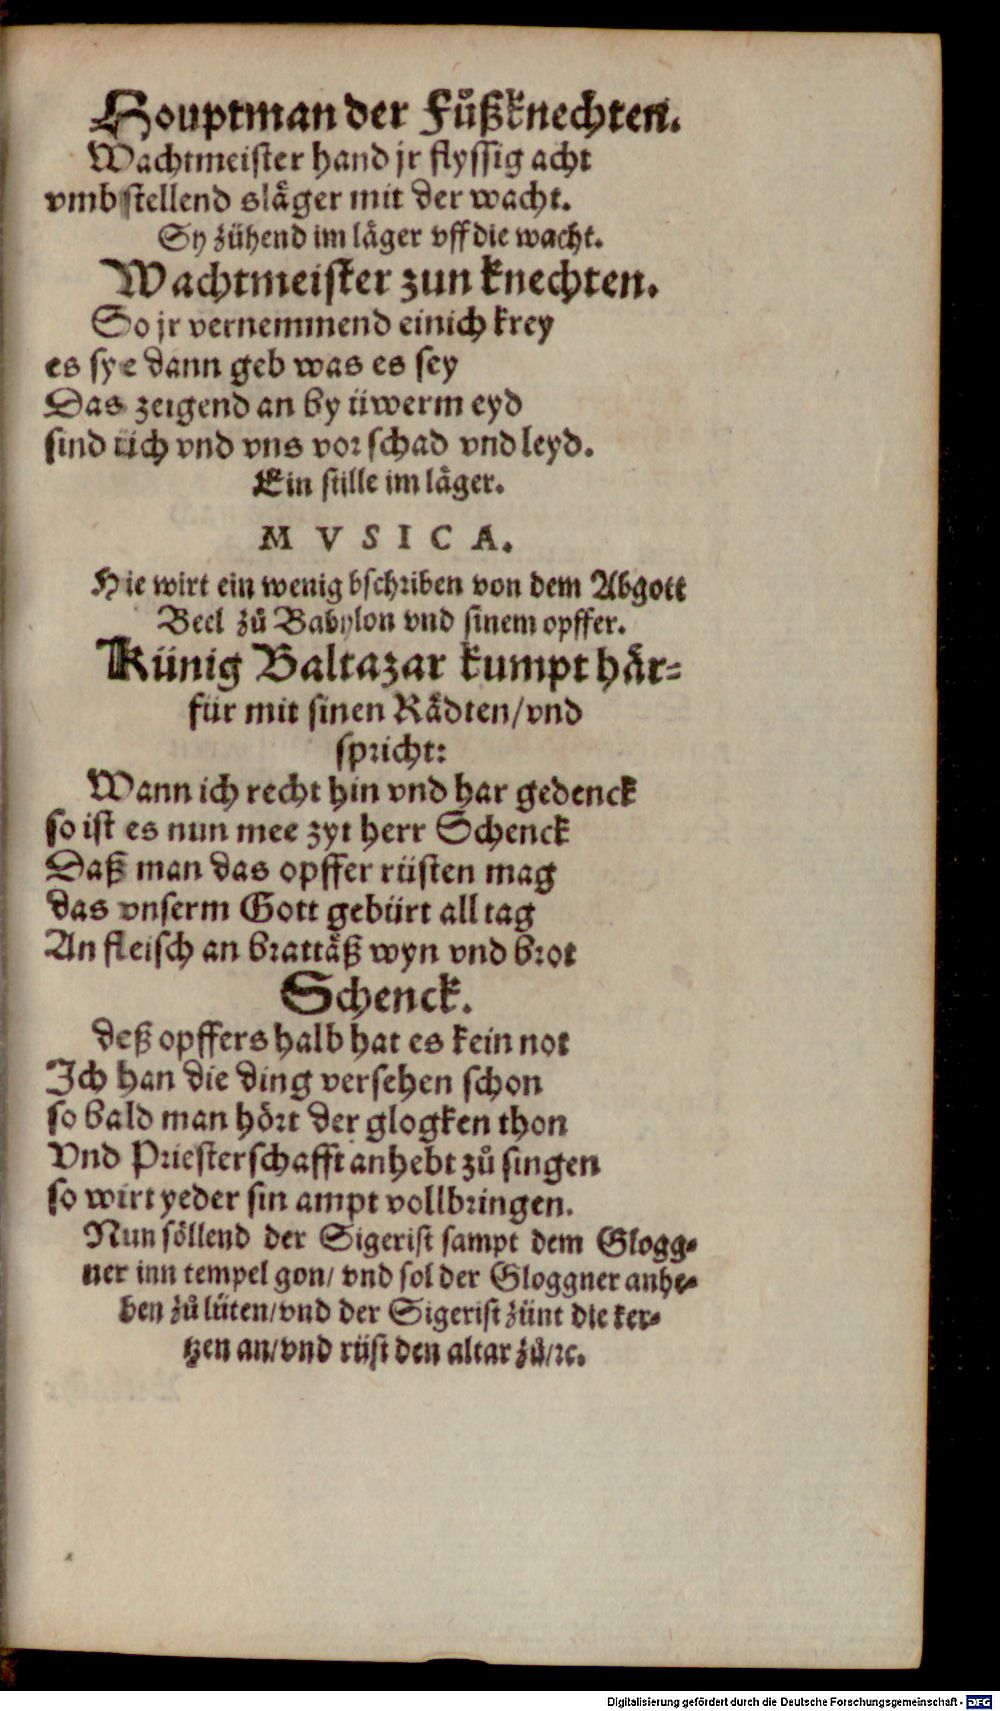 Houptman der Fůßknechten.
Wachtmeister hand jr flyssig acht
vmbstellend släger mit der wacht.
Sy zühend im läger vff die wacht.
Wachtmeister zun knechten.
So jr vernemmend einich krey
es sye dann geb was es sey
Das zeigend an by üwerm eyd
sind üch vnd vns vor schad vnd leyd.
Ein stille im läger.
MVSICA.
Hie wirt ein wenig bschriben von dem Abgott
Beel zů Babylon vnd sinem opffer.
Künig Baltazar kumpt här=
für mit sinen Rädten/vnd
spricht:
Wann ich recht hin vnd har gedenck
so ist es nun mee zyt herr Schenck
Daß man das opffer rüsten mag
das vnserm Gott gebürt all tag
An fleisch an brattäß wyn vnd brot
Schenck.
deß opffers halb hat es kein not
Ich han die ding versehen schon
so bald man hört der glogken thon
Vnd Priesterschafft anhebt zů singen
so wirt yeder sin ampt vollbringen.
Nun söllend der Sigerist sampt dem Glogg=
ner inn tempel gon/ vnd sol der Gloggner anhe=
ben zů lüten/vnd der Sigerist zünt die ker=
tzen an/vnd rüst den altar zů/ꝛc.
Digitalisierung gefördert durch die Deutsche Forschungsgemeinschaft - DFG